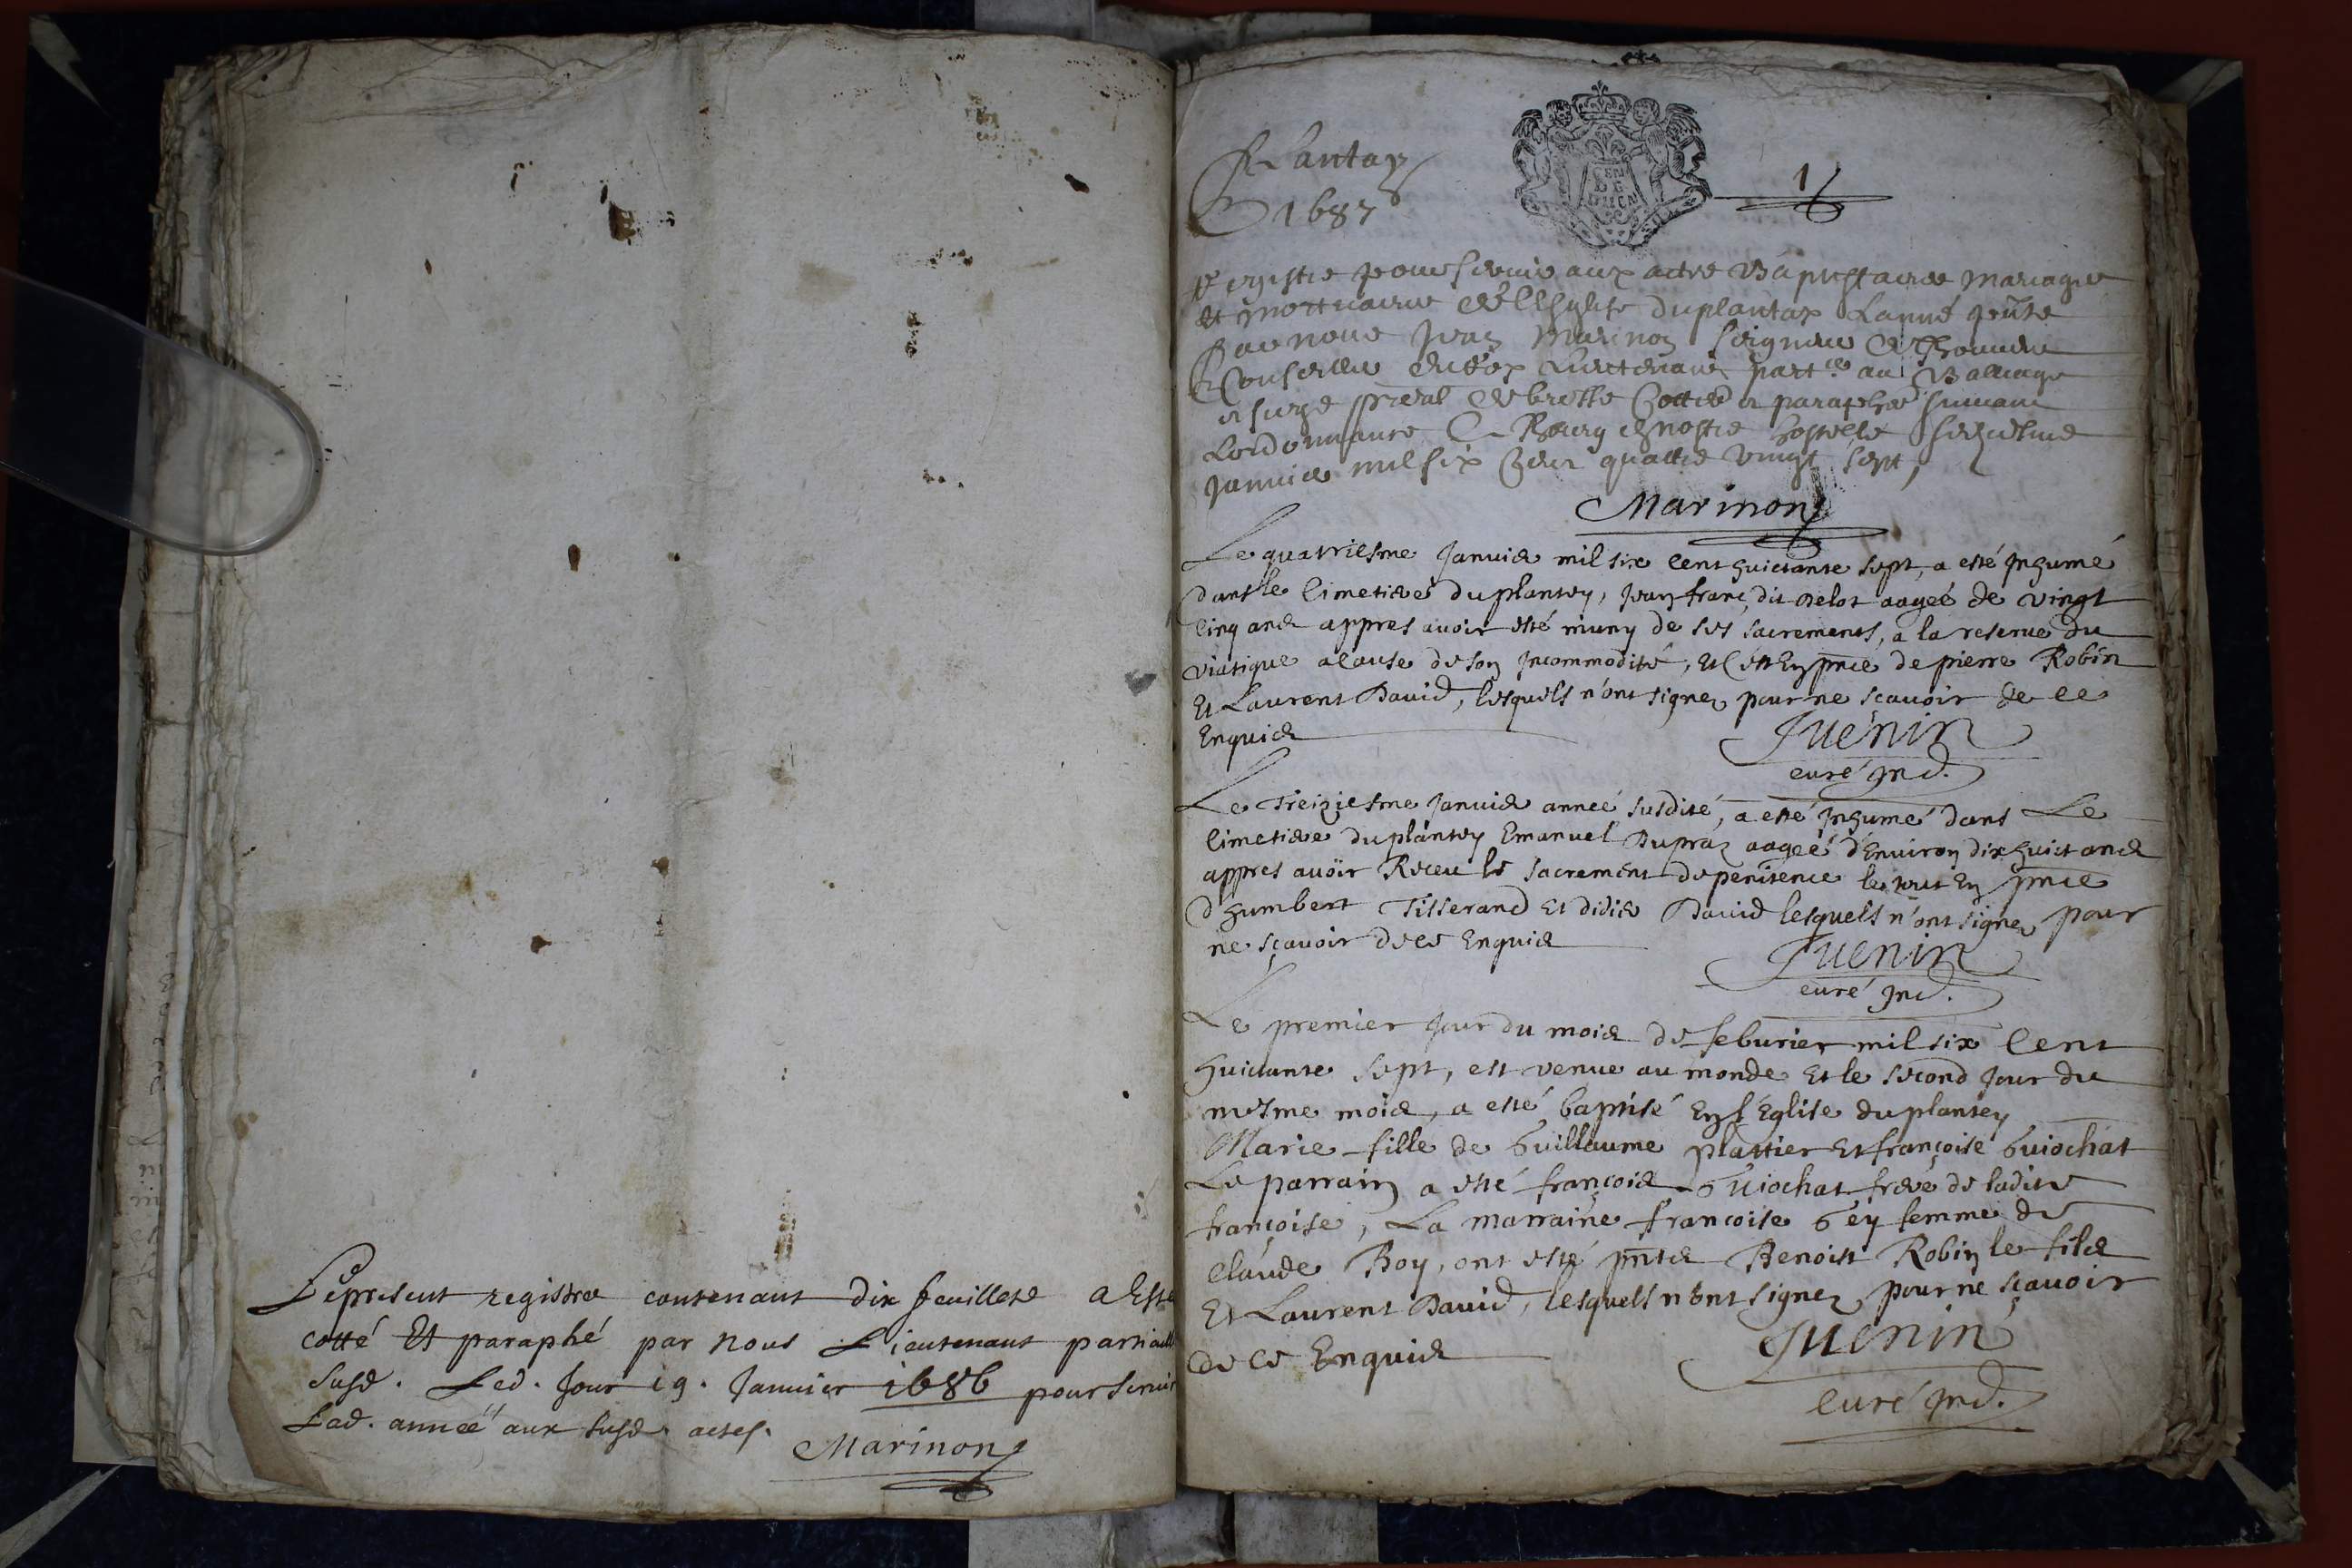 Le present registre contenant dix feuillets a esté
cotté Et paraphé par nous Lieutenant partiaull
susd. Led. Jour 19. Janvier 1686 pour servir
Lad. année aux susd. actes.
Marinon
Plantay
1687
1
GEN
DE
Registre pour servir aux actes Baptistaires Mariages
et mortuaires de l'Esglise du plantay L'anné pnte
Par nous Jean Marinon seigneur de
Conseiller du Roy Lieutenant part.er au Balliage
et siege preal de bresse Cottés et paraphés suivant
Lordonnance A Bourg en nostre hostelle
janvier mil six Cent quattre vingt sept,
Marinon
Le quatriesme Janvier mil six Cent huictante sept, a esté Inhumé
dans le Cimetiere du plantey, Jean franc dit Velot aageé de vingt
Cinq ans appres avoir esté muny de ses sacrements, a la reserve du
viatique a cause de son Incommodité, et C'est En pnce de pierre Robin
Et Laurent David, lesquels n'ont signez pour ne sçavoir de ce
Enquis
Juenin
curé Ind.
Le Treiziesme Janvier anneé susdite, a esté Inhumé dans Le
Cimetiere du plantey Emanuel Dupraz aageé d'Environ dix huict ans
appres avoir Receu le sacrement de penitence le tout En pnce
d'humbert Tisserand et didier David lesquels n'ont signez pour
ne sçavoir de ce Enquis
Juenin
curé Ind.
Le premier Jour du mois de feburier mil six Cent
huictante sept, est venue au monde Et le second Jour du
mesme mois, a esté baptisé En l'Eglise du plantey
Marie fille de Guillaume plattier Et françoise Guiochat
Le parrain a esté françois Guiochat frere de ladite
françoise, La marraine francoise Gey femme de
Claude Boy, ont esté pnts Benoist Robin le fils
Et Laurent David, lesquels n'ont signez pour ne sçavoir
de ce Enquis
Juenin
Curé Ind.